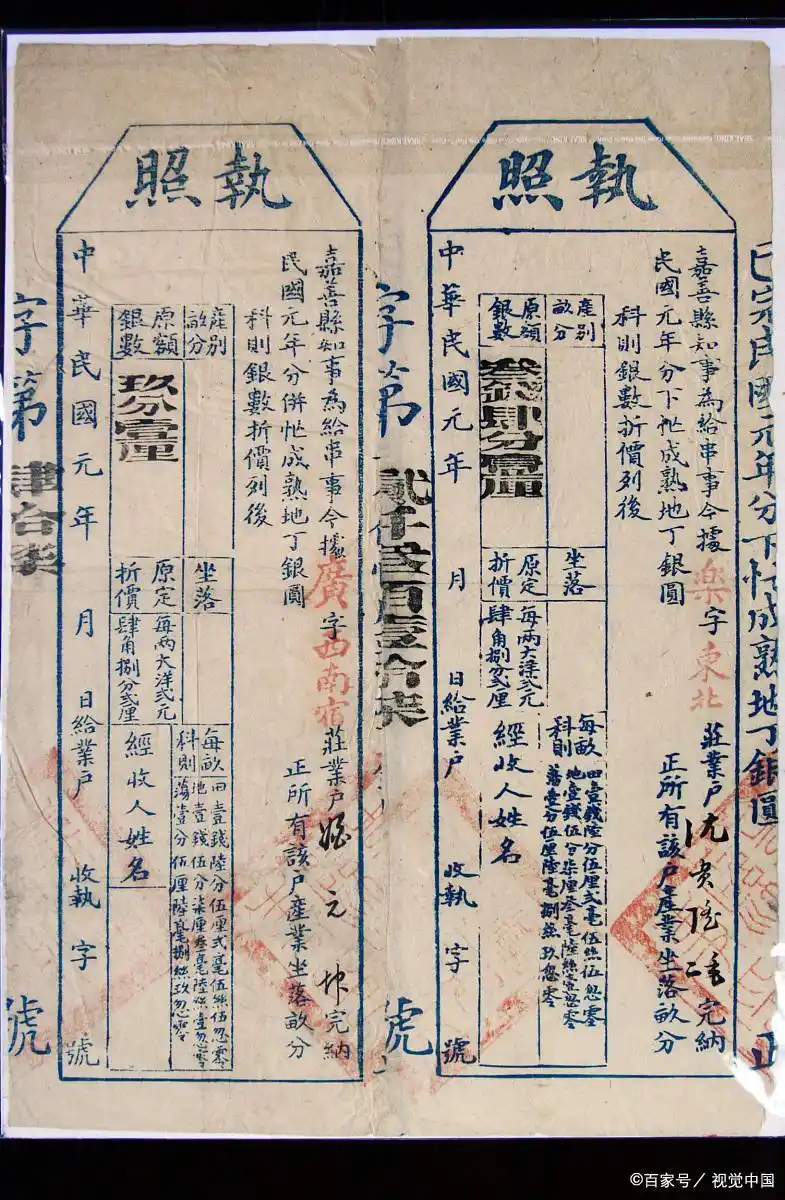 執照
嘉善縣知事為給串事今據樂字東北莊業户沈貴隆完納
民國元年分下忙成熟地丁銀圓
正所有該户產業坐落畝分
科則銀數折價列後
產别畝分
坐落
每畝科則
田壹錢陸分伍厘弍毫伍絲伍忽零
地壹錢伍分柒厘叁毫陸絲壹忽零
蕩壹分伍厘陸毫捌絲玖忽零
原額銀數
叁錢肆分壹厘
原定折價
每兩大洋弍元
肆角捌分弍厘
經收人姓名
中華民國元年 月 日給業户 收執 字 號
字第
貳千弍百叁拾柒
號
執照
嘉善縣知事為給串事今據廣字西南宿莊業户 元 完納
民國元年分併忙成熟地丁銀圓
正所有該户產業坐落畝分
科則銀數折價列後
產别畝分
坐落
每畝科則
田壹錢陸分伍厘弍毫伍絲伍忽零
地壹錢伍分柒厘叁毫陸絲壹忽零
蕩壹分伍厘陸毫捌絲玖忽零
原額銀數
玖分壹厘
原定折價
每兩大洋弍元
肆角捌分弍厘
經收人姓名
中華民國元年 月 日給業户 收執 字 號
字第
肆拾柒
號
已完民國元年分下忙成熟地丁銀圓
正
©百家号／视觉中国